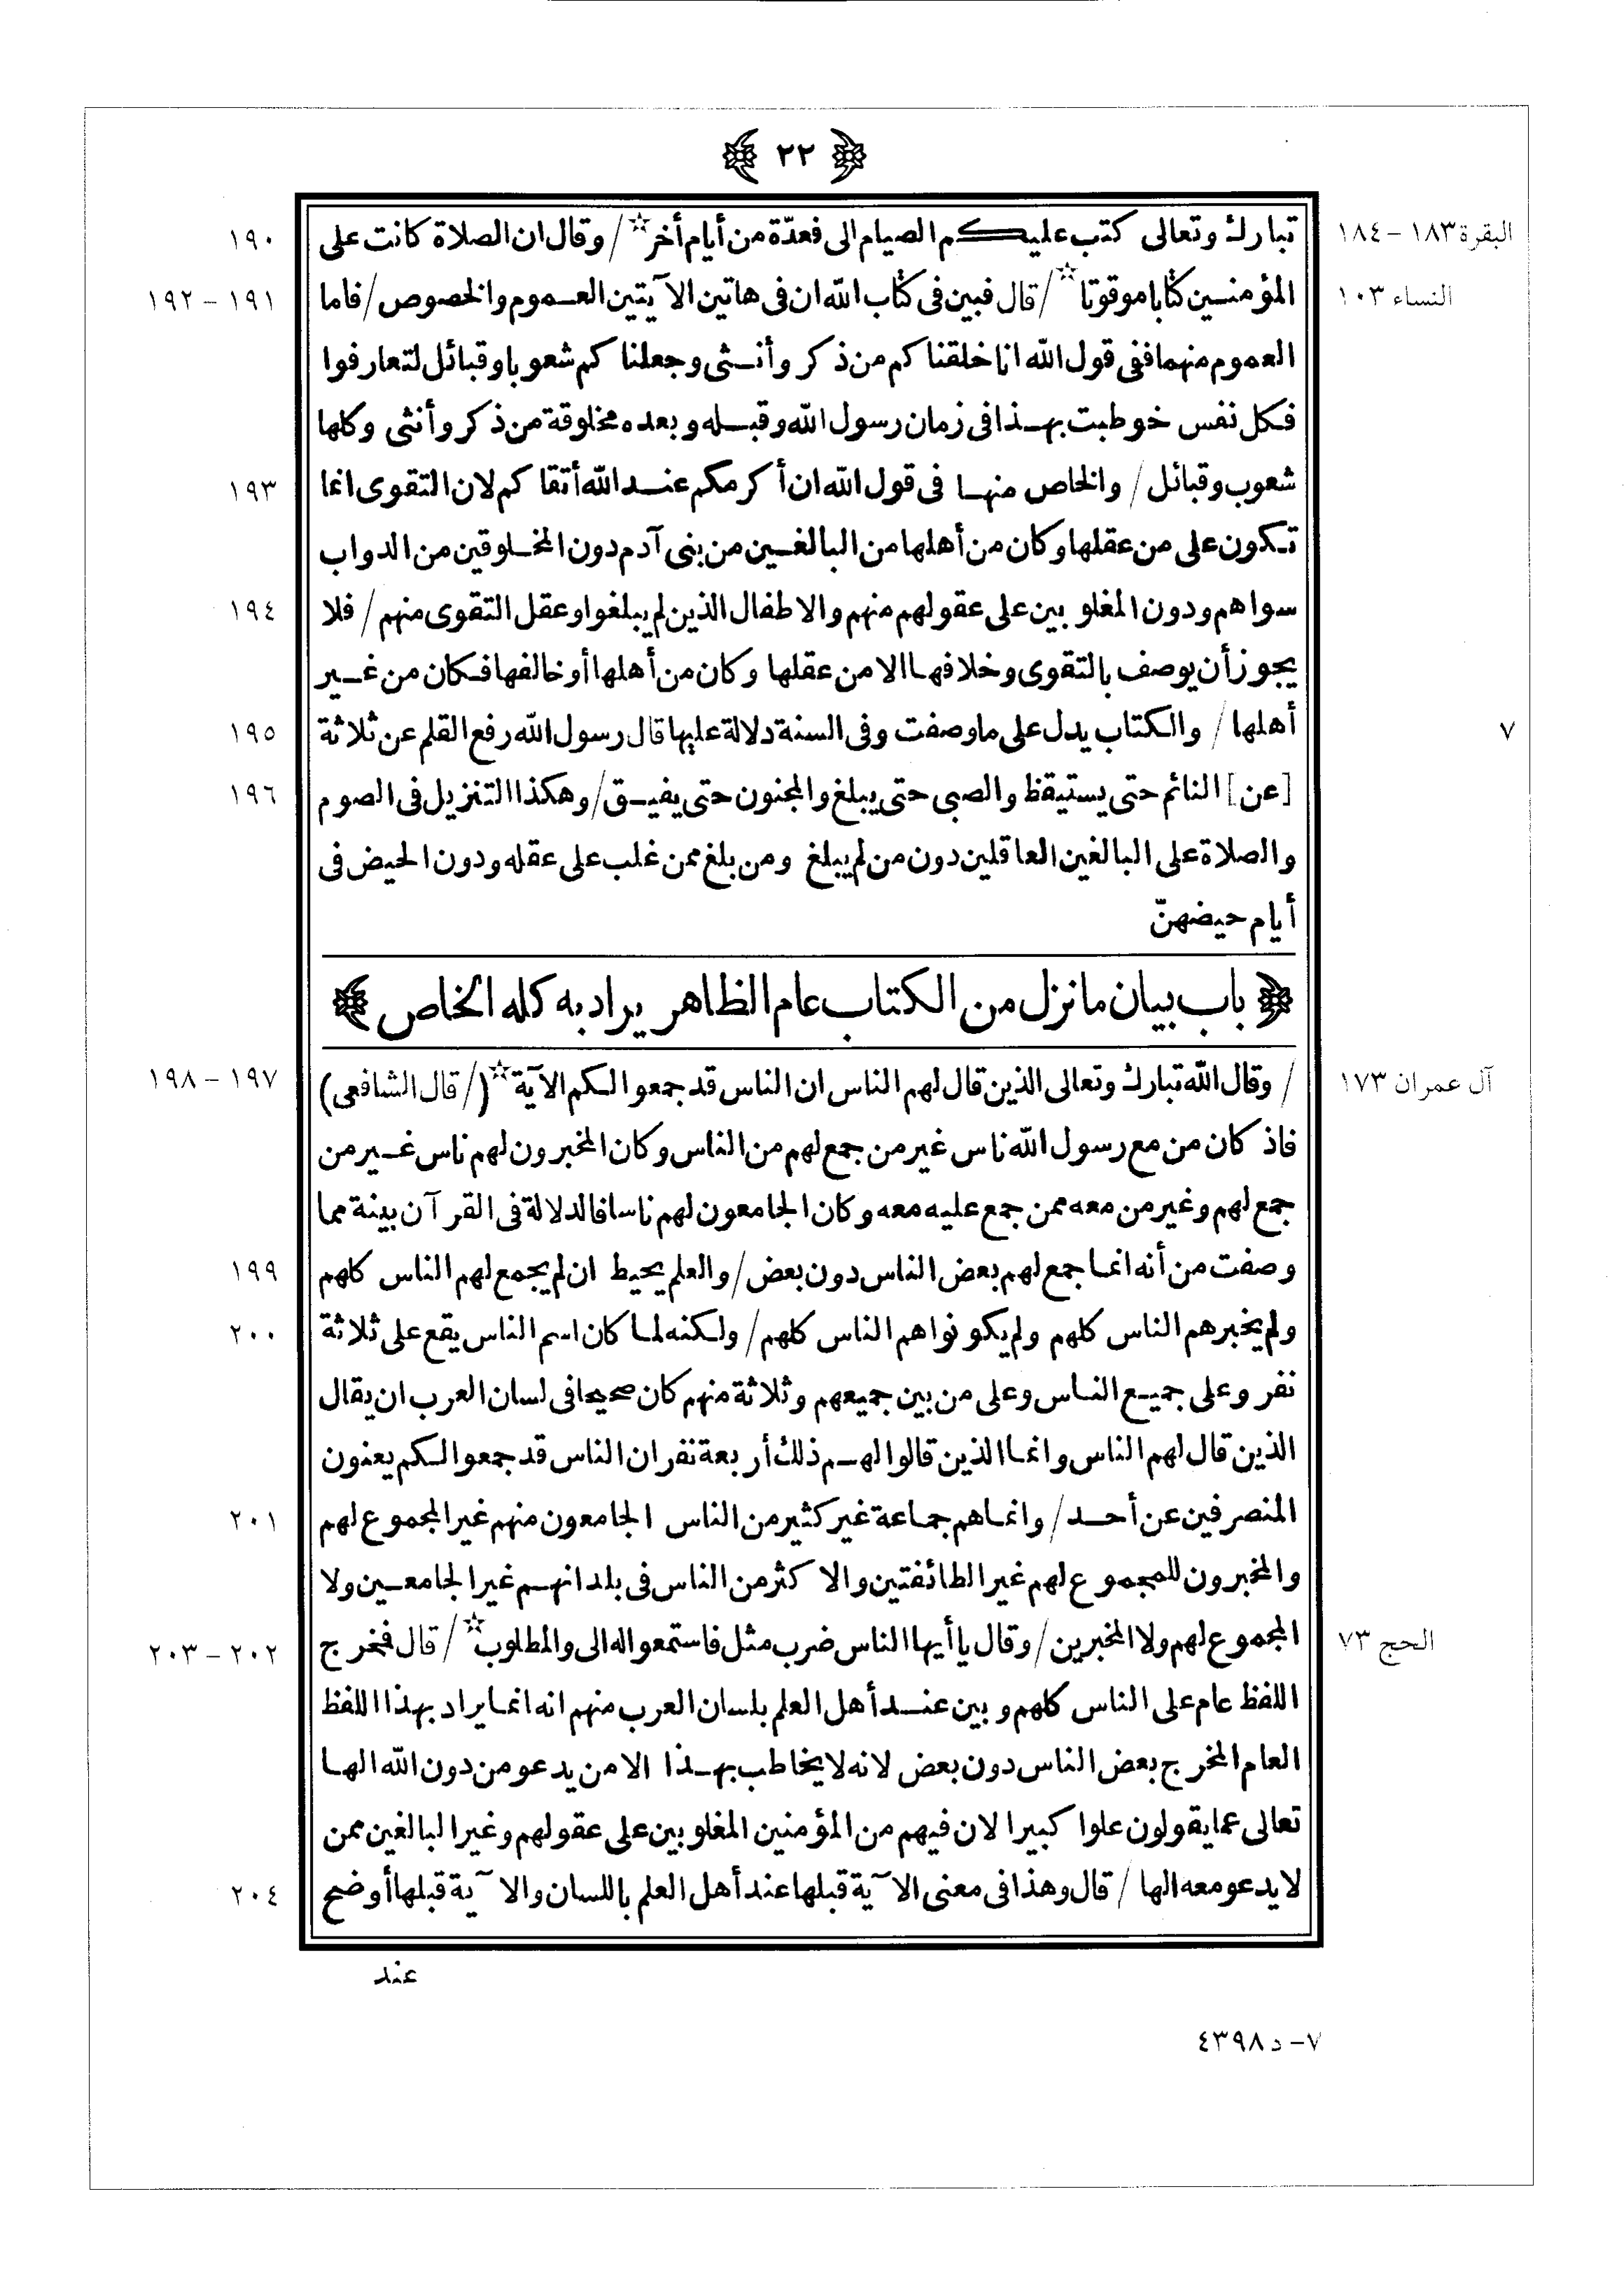 ﴿ ٢٢ ﴾
البقرة ١٨٣ – ١٨٤
تبارك وتعالى كتب عليكم الصيام الى فعدّة من أيام أخر☆/ وقال ان الصلاة كانت على
١٩٠
النساء ١٠٣
المؤمنين كتابا موقوتا☆/ قال فبين فى كتاب الله ان فى هاتين الآيتين العموم والخصوص/ فاما
١٩١ – ١٩٢
العموم منهما ففى قول الله انا خلقناكم من ذكر وأنثى وجعلناكم شعوبا وقبائل لتعارفوا
فكل نفس خوطبت بهذا فى زمان رسول الله وقبله وبعده مخلوقة من ذكر وأنثى وكلها
شعوب وقبائل/ والخاص منها فى قول الله ان أكرمكم عند الله أتقاكم لان التقوى انما
١٩٣
تكون على من عقلها وكان من أهلها من البالغين من بنى آدم دون المخلوقين من الدواب
سواهم ودون المغلوبين على عقولهم منهم والاطفال الذين لم يبلغوا وعقل التقوى منهم/ فلا
١٩٤
يجوز أن يوصف بالتقوى وخلافها الا من عقلها وكان من أهلها أو خالفها فكان من غير
٧
أهلها/ والكتاب يدل على ما وصفت وفى السنة دلالة عليها قال رسول الله رفع القلم عن ثلاثة
١٩٥
[عن] النائم حتى يستيقظ والصبى حتى يبلغ والمجنون حتى يفيق/ وهكذا التنزيل فى الصوم
١٩٦
والصلاة على البالغين العاقلين دون من لم يبلغ ومن بلغ ممن غلب على عقله ودون الحيض فى
أيام حيضهنّ
﴿ باب بيان ما نزل من الكتاب عام الظاهر يراد به كله الخاص ﴾
آل عمران ١٧٣
/ وقال الله تبارك وتعالى الذين قال لهم الناس ان الناس قد جمعوا لكم الآية☆ (/ قال الشافعى)
١٩٧ – ١٩٨
فاذ كان من مع رسول الله ناس غير من جمع لهم من الناس وكان المخبرون لهم ناس غير من
جمع لهم وغير من معه ممن جمع عليه معه وكان الجامعون لهم ناسا فالدلالة فى القرآن بينة مما
وصفت من أنه انما جمع لهم بعض الناس دون بعض/ والعلم يحيط ان لم يجمع لهم الناس كلهم
١٩٩
ولم يخبرهم الناس كلهم ولم يكونوا هم الناس كلهم/ ولكنه لما كان اسم الناس يقع على ثلاثة
٢٠٠
نفر وعلى جميع الناس وعلى من بين جميعهم وثلاثة منهم كان صحيحا فى لسان العرب ان يقال
الذين قال لهم الناس وانما الذين قالوا لهم ذلك أربعة نفر ان الناس قد جمعوا لكم يعنون
المنصرفين عن أحد/ وانما هم جماعة غير كثير من الناس الجامعون منهم غير المجموع لهم
٢٠١
والمخبرون للمجموع لهم غير الطائفتين والاكثر من الناس فى بلدانهم غير الجامعين ولا
الحج ٧٣
المجموع لهم ولا المخبرين/ وقال يا أيها الناس ضرب مثل فاستمعوا له الى والمطلوب☆/ قال فخرج
٢٠٢ – ٢٠٣
اللفظ عام على الناس كلهم وبين عند أهل العلم بلسان العرب منهم انه انما يراد بهذا اللفظ
العام المخرج بعض الناس دون بعض لانه لا يخاطب بهذا الا من يدعو من دون الله الها
تعالى عما يقولون علوا كبيرا لان فيهم من المؤمنين المغلوبين على عقولهم وغير البالغين ممن
لا يدعو معه الها/ قال وهذا فى معنى الآية قبلها عند أهل العلم باللسان والآية قبلها أوضح
٢٠٤
عند
٧– د ٤٣٩٨